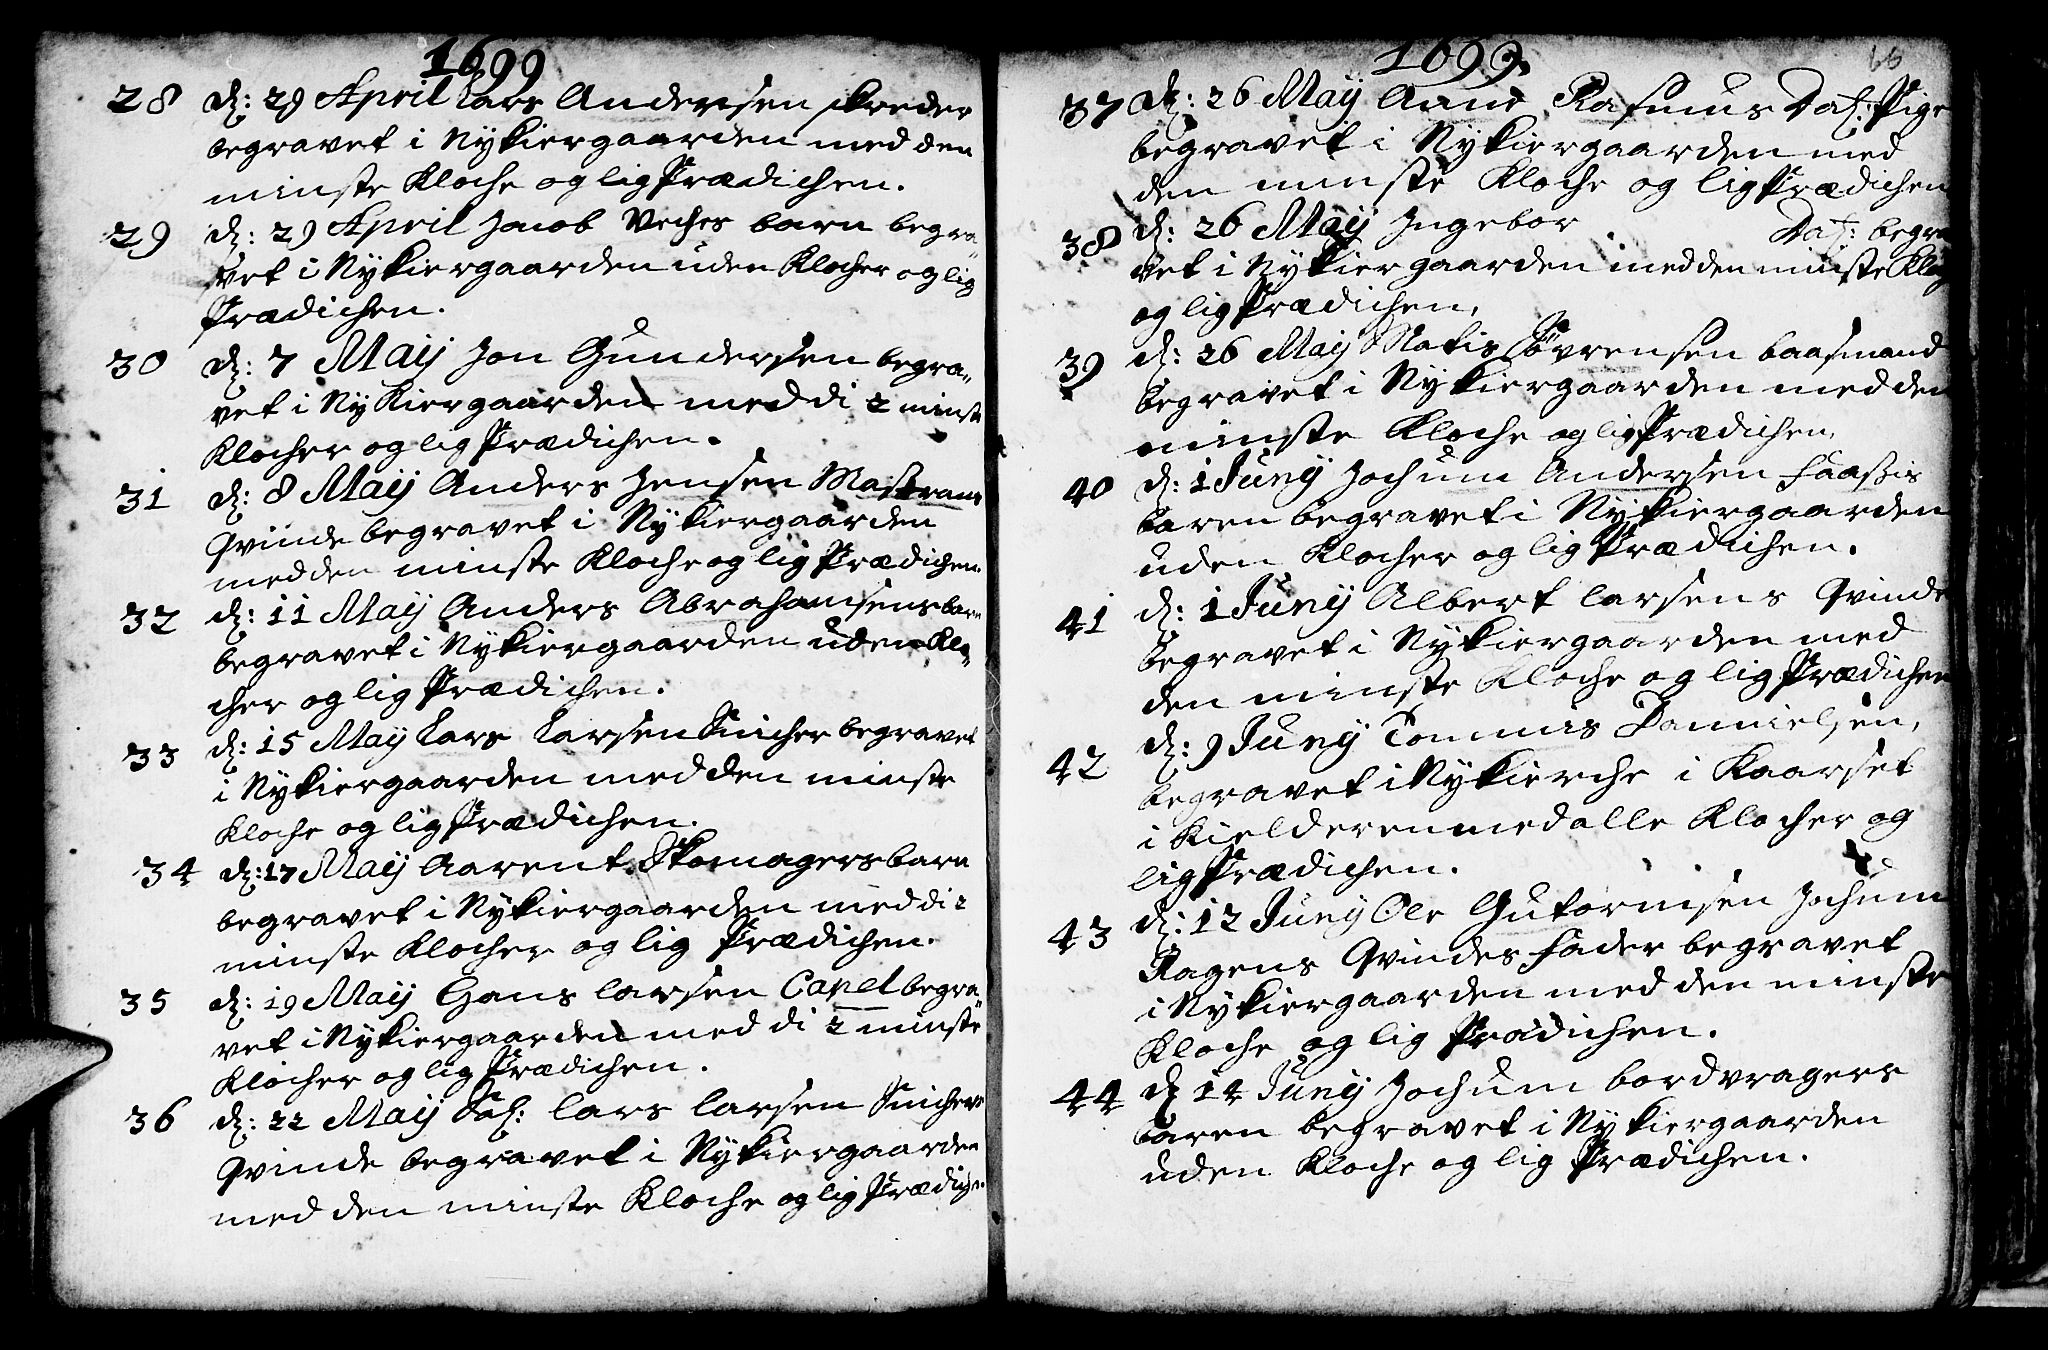 1699
28 d: 29 April Lars Andersen skreder
begravet i Nykiergaarden med den
minste Kloche og lig Prædichen.
29 d: 29 April Jacob Veches barn begra„
vet i Nykiergaarden uden Klocher og lig
Prædichen.
30 d: 7 Maij Jon Gundersen begra„
vet i Ny Kiergaarden med di 2 minste
Klocher og lig Prædichen.
31 d: 8 Maij Anders Jensen
Qvinde begravet i Nykiergaarden
med den minste Kloche og lig Prædichen.
32 d: 11 Maij Anders Abrahamsens barn
begravet i Nykiergaarden uden Klo„
cher og lig Prædichen.
33 d: 15 Maij Lars Larsen Snicher begravet
i Nykiergaarden med den minste
Kloche og lig Prædichen.
34 d: 17 Maij Aarent Skomagers barn
begravet i Nykiergaarden med di 2
minste Klocher og lig Prædichen.
35 d: 19 Maij Hans Larsen Capel begra„
vet i Nykiergaarden med di 2 minste
Klocher og lig Prædichen.
36 d: 22 Maij Sal: Lars Larsen Snichers
Qvinde begravet i Nykiergaarden
med den minste Kloche og lig Prædichen.
1699. 66
37 d: 26 Maij Anne Rasmus Dat: Pige
begravet i Nykiergaarden med
den minste Kloche og lig Prædichen
38 d: 26 Maij Ingebor Dat: begra
vet i Nykiergaarden med den minste Kloch
og lig Prædichen,
39 d: 26 Maij Matis Søvrensen baasmand
begravet i Nykiergaarden med den
minste Kloche og lig Prædichen,
40 d: 1 Juny Jochum Andersen Faassis
baren begravet i Nykiergaarden
uden Klocher og lig Prædichen.
41 d: 1 Juny Albert Larsens Qvinde
begravet i Nykiergaarden med
den minste Kloche og lig Prædichen
42 d: 9 Juny Tommis Dannielsen,
begravet i Nykierche i Kaarset
i Kielderen med alle Klocher og
lig Prædichen.
43 d: 12 Juny Ole Gutormsen Jochum
Ragens Qvindes Fader begravet
i Nykiergaarden med den minste
Kloche og lig Prædichen.
44 d 14 Juny Jochum bordvragers
baren begravet i Nykiergaarden
uden Kloche og lig Prædichen.